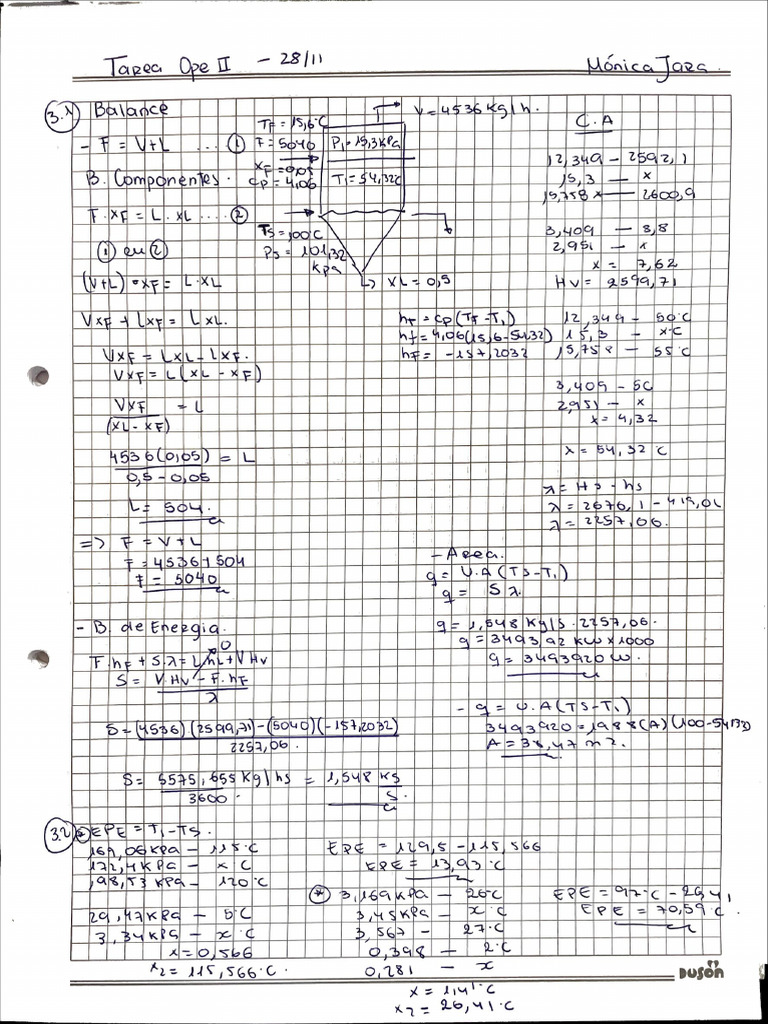 Tarea Ope II - 28/11 Mónica Jara
3.1 Balance
- F = V+L .... ①
B. Componentes.
F. XF = L. XL .... ②
① en ②
(V+L) • XF = L. XL
VXF + LXF = LXL.
VXF = LXL - LXF.
VXF = L(XL - XF)
VXF = L
(XL - XF)
4536 (0,05) = L
0,5 - 0,05
L = 504.
=> F = V+L
F = 4536+504
F = 5040
TF = 15,6°C
F = 5040
XF = 0,05
CP = 4,06
V = 4536 Kg/h.
P1 = 15,3KPa
T1 = 54,32°C
TS = 100°C
PS = 101,32
KPa
XL = 0,5
hF = CP (TF - T1)
hF = 4,06 (15,6 - 54,32)
hF = -157,2032
C.A
12,349 - 2592,1
15,3 — x
15,758 — 2600,9
3,409 — 8,8
2,951 — x
x = 7,62
HV = 2599,71
12,349 — 50°C
15,3 — x°C
15,758 — 55°C
3,409 - 5C
2,951 - x
x = 4,32
x = 54,32°C
λ = Hs - hs
λ = 2676,1 - 419,04
λ = 2257,06.
- B. de Energia.
F. hF + S.λ = L hL + V HV
0
S = V.HV - F. hF
λ
S = (4536)(2599,71) - (5040)(-157,2032)
2257,06.
S = 5575,655 Kg/hs = 1,548 Kg
3600. S.
- Area.
q = U.A (TS - T1)
q = S λ.
q = 1,548 Kg/s. 2257,06.
q = 3493,92 KW x 1000
q = 3493920 W.
- q = U.A (TS - T1)
3493920 = 1988 (A) (100 - 54,32)
A = 38,47 m².
3.2 * EPE = T1 - TS.
169,06KPA - 115°C
172,4KPA - x°C
198,53KPA - 120°C
29,47KPA - 5°C
3,34KPA - x°C
x = 0,566
x2 = 115,566°C.
EPE = 129,5 - 115,566
EPE = 13,93°C
* 3,169KPA - 25°C
3,45KPA - x°C
3,567 - 27°C
0,398 - 2°C
0,281 - x
x = 1,41°C
x2 = 26,41°C
EPE = 97°C - 26,41
EPE = 70,59°C
DUSON